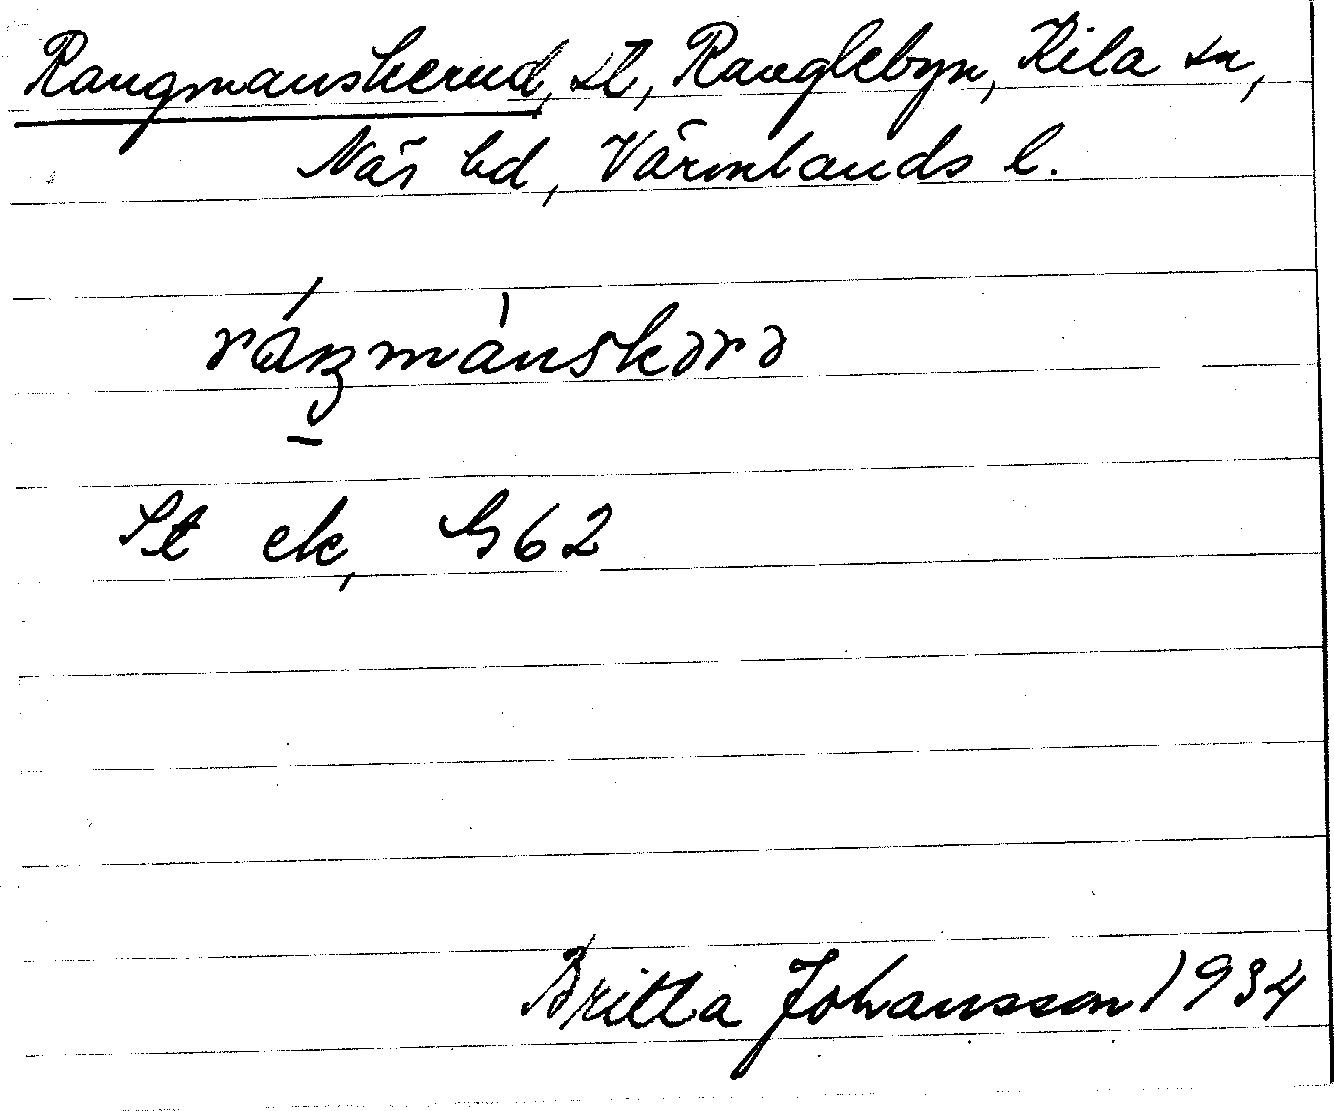 Rangmanskerud, St, Ranglebyn, Kila sn,
Näs hd, Värmlands l.
ráŋmànskərə
St ek, G62
Britta Johansson 1934